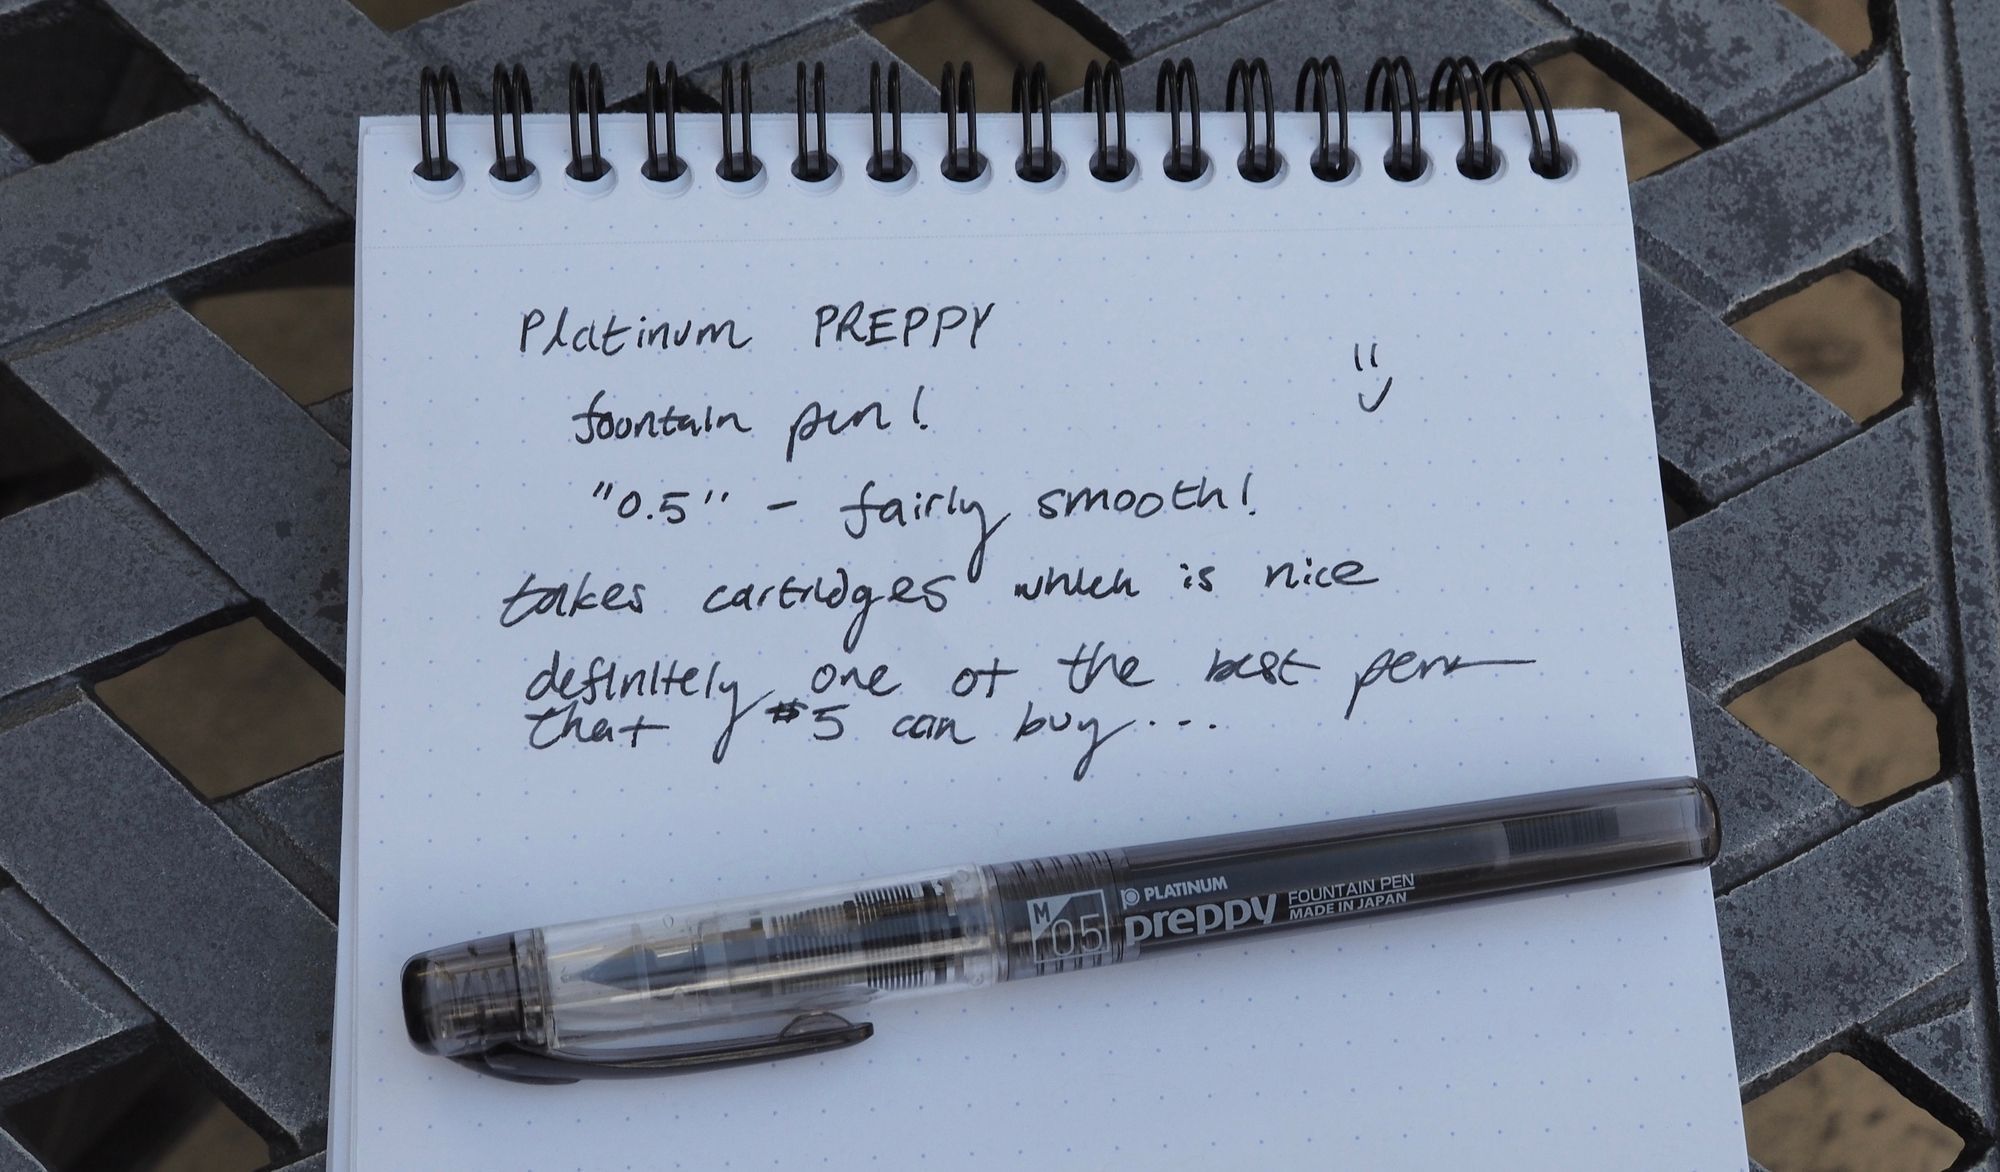 Platinum PREPPY
fountain pen!
"0.5" - fairly smooth!
takes cartridges which is nice
definitely one of the best pens
that $5 can buy...
M
05
PLATINUM
preppy
FOUNTAIN PEN
MADE IN JAPAN